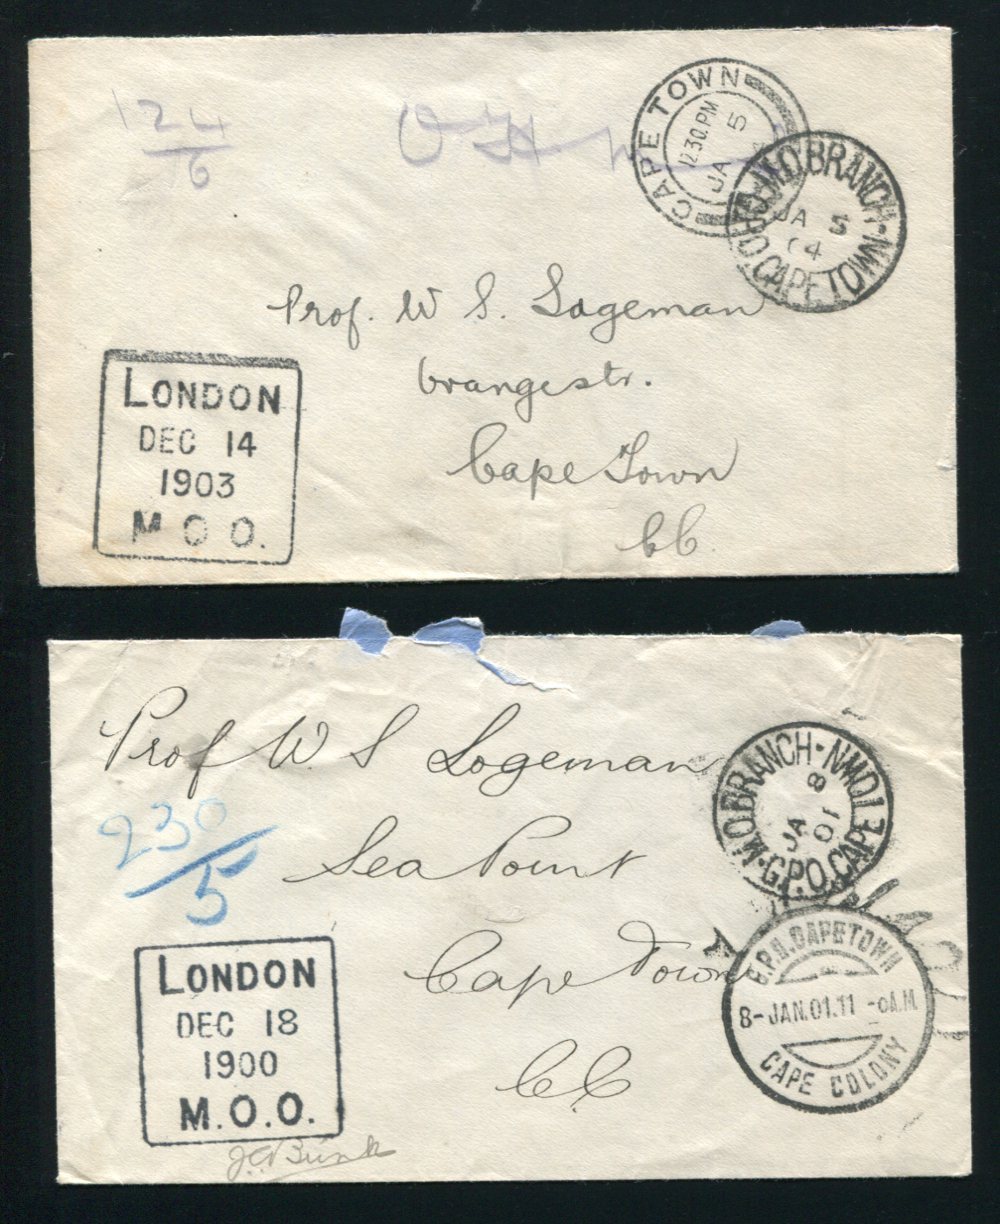 124
16
CAPE TOWN
12.30.PM
JA 5
M.O. BRANCH
JA 5
04
CAPE TOWN
Prof. W S. Logeman
Orangestr.
Cape Town
CC.
LONDON
DEC 14
1903
M.O.O.
Prof W. S Logeman
230
5
Sea Point
Cape Town
CC
M.O. BRANCH - G.P.O. CAPE TOWN
JA 8
01
G.P.O. CAPETOWN
8-JAN.01.11 -0A.M.
CAPE COLONY
LONDON
DEC 18
1900
M.O.O.